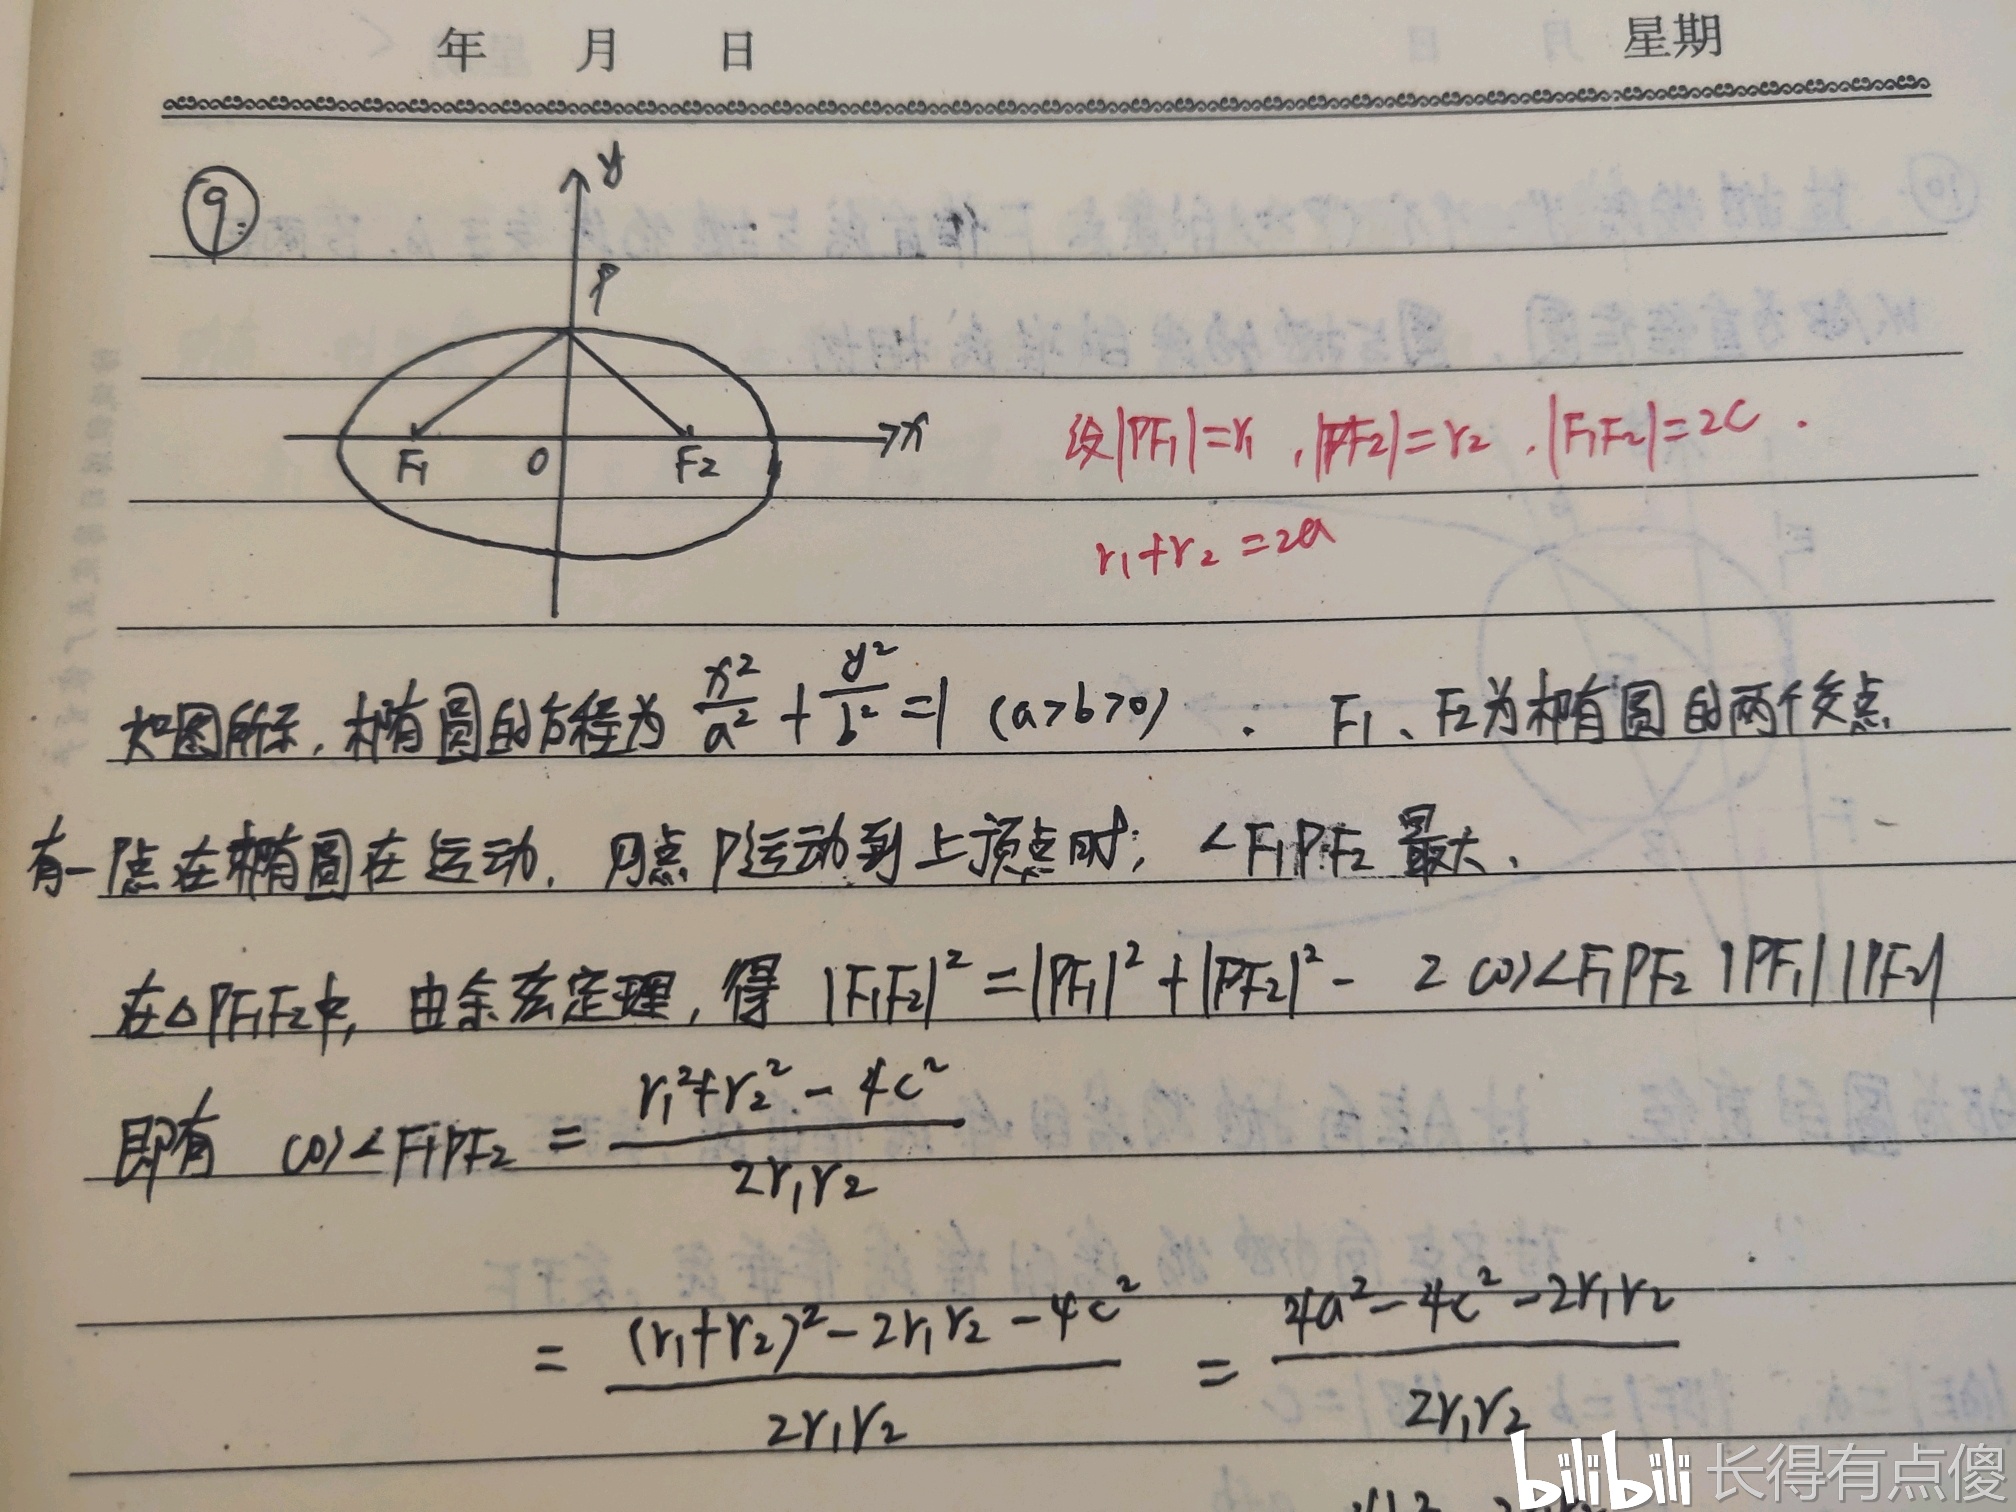 年 月 日 星期
⑨
y
P
F₁ O F₂ x
设|PF₁|=r₁,|PF₂|=r₂,|F₁F₂|=2c.
r₁+r₂=2a
如图所示,椭圆的方程为 x²/a² + y²/b² =1 (a>b>0). F₁、F₂为椭圆的两个交点
有一点在椭圆在运动. 月点P运动到上顶点时; ∠F₁PF₂ 最大.
在△PF₁F₂中, 由余弦定理, 得 |F₁F₂|²=|PF₁|²+|PF₂|²- 2cos∠F₁PF₂ |PF₁||PF₂|
即有 cos∠F₁PF₂ = (r₁²+r₂²-4c²)/(2r₁r₂)
= ((r₁+r₂)²-2r₁r₂-4c²)/(2r₁r₂) = (4a²-4c²-2r₁r₂)/(2r₁r₂)
bilibili 长得有点傻